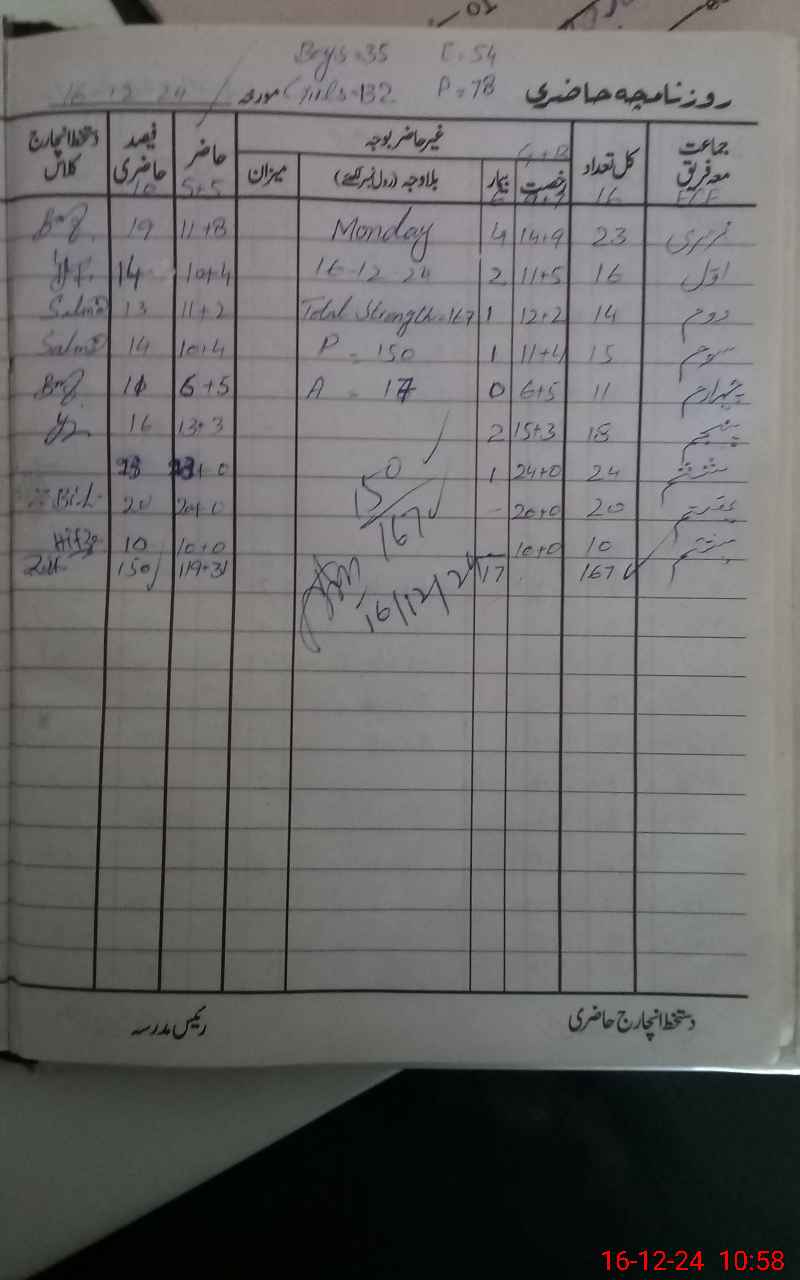 Boys = 35 E = 54
روزنامچہ حاضری P = 78 Girls = 132 مورخہ 16-12-24
جماعت معہ فریق کل تعداد غیر حاضر بوجہ حاضر فیصد حاضری دستخط انچارج کلاس
رخصت بیمار بلاوجہ (رول نمبر لکھئے) میزان
ECE 16 5+5 10
نرسری 23 14+9 4 Monday 11+8 19
اوّل 16 11+5 2 16-12-24 10+4 14
دوم 14 12+2 1 Total Strength = 167 11+2 13 Salma
سوم 15 11+4 1 P = 150 10+4 14 Salma
چہارم 11 6+5 0 A = 17 6+5 11
پنجم 18 15+3 2 13+3 16
ششم 24 24+0 1 23+0 23
ہفتم 20 20+0 - 150/167 20+0 20
ہشتم 10 10+0 10+0 10 Hifza
167 17 16/12/24 119+31 150
دستخط انچارج حاضری رئیس مدرسہ
16-12-24 10:58